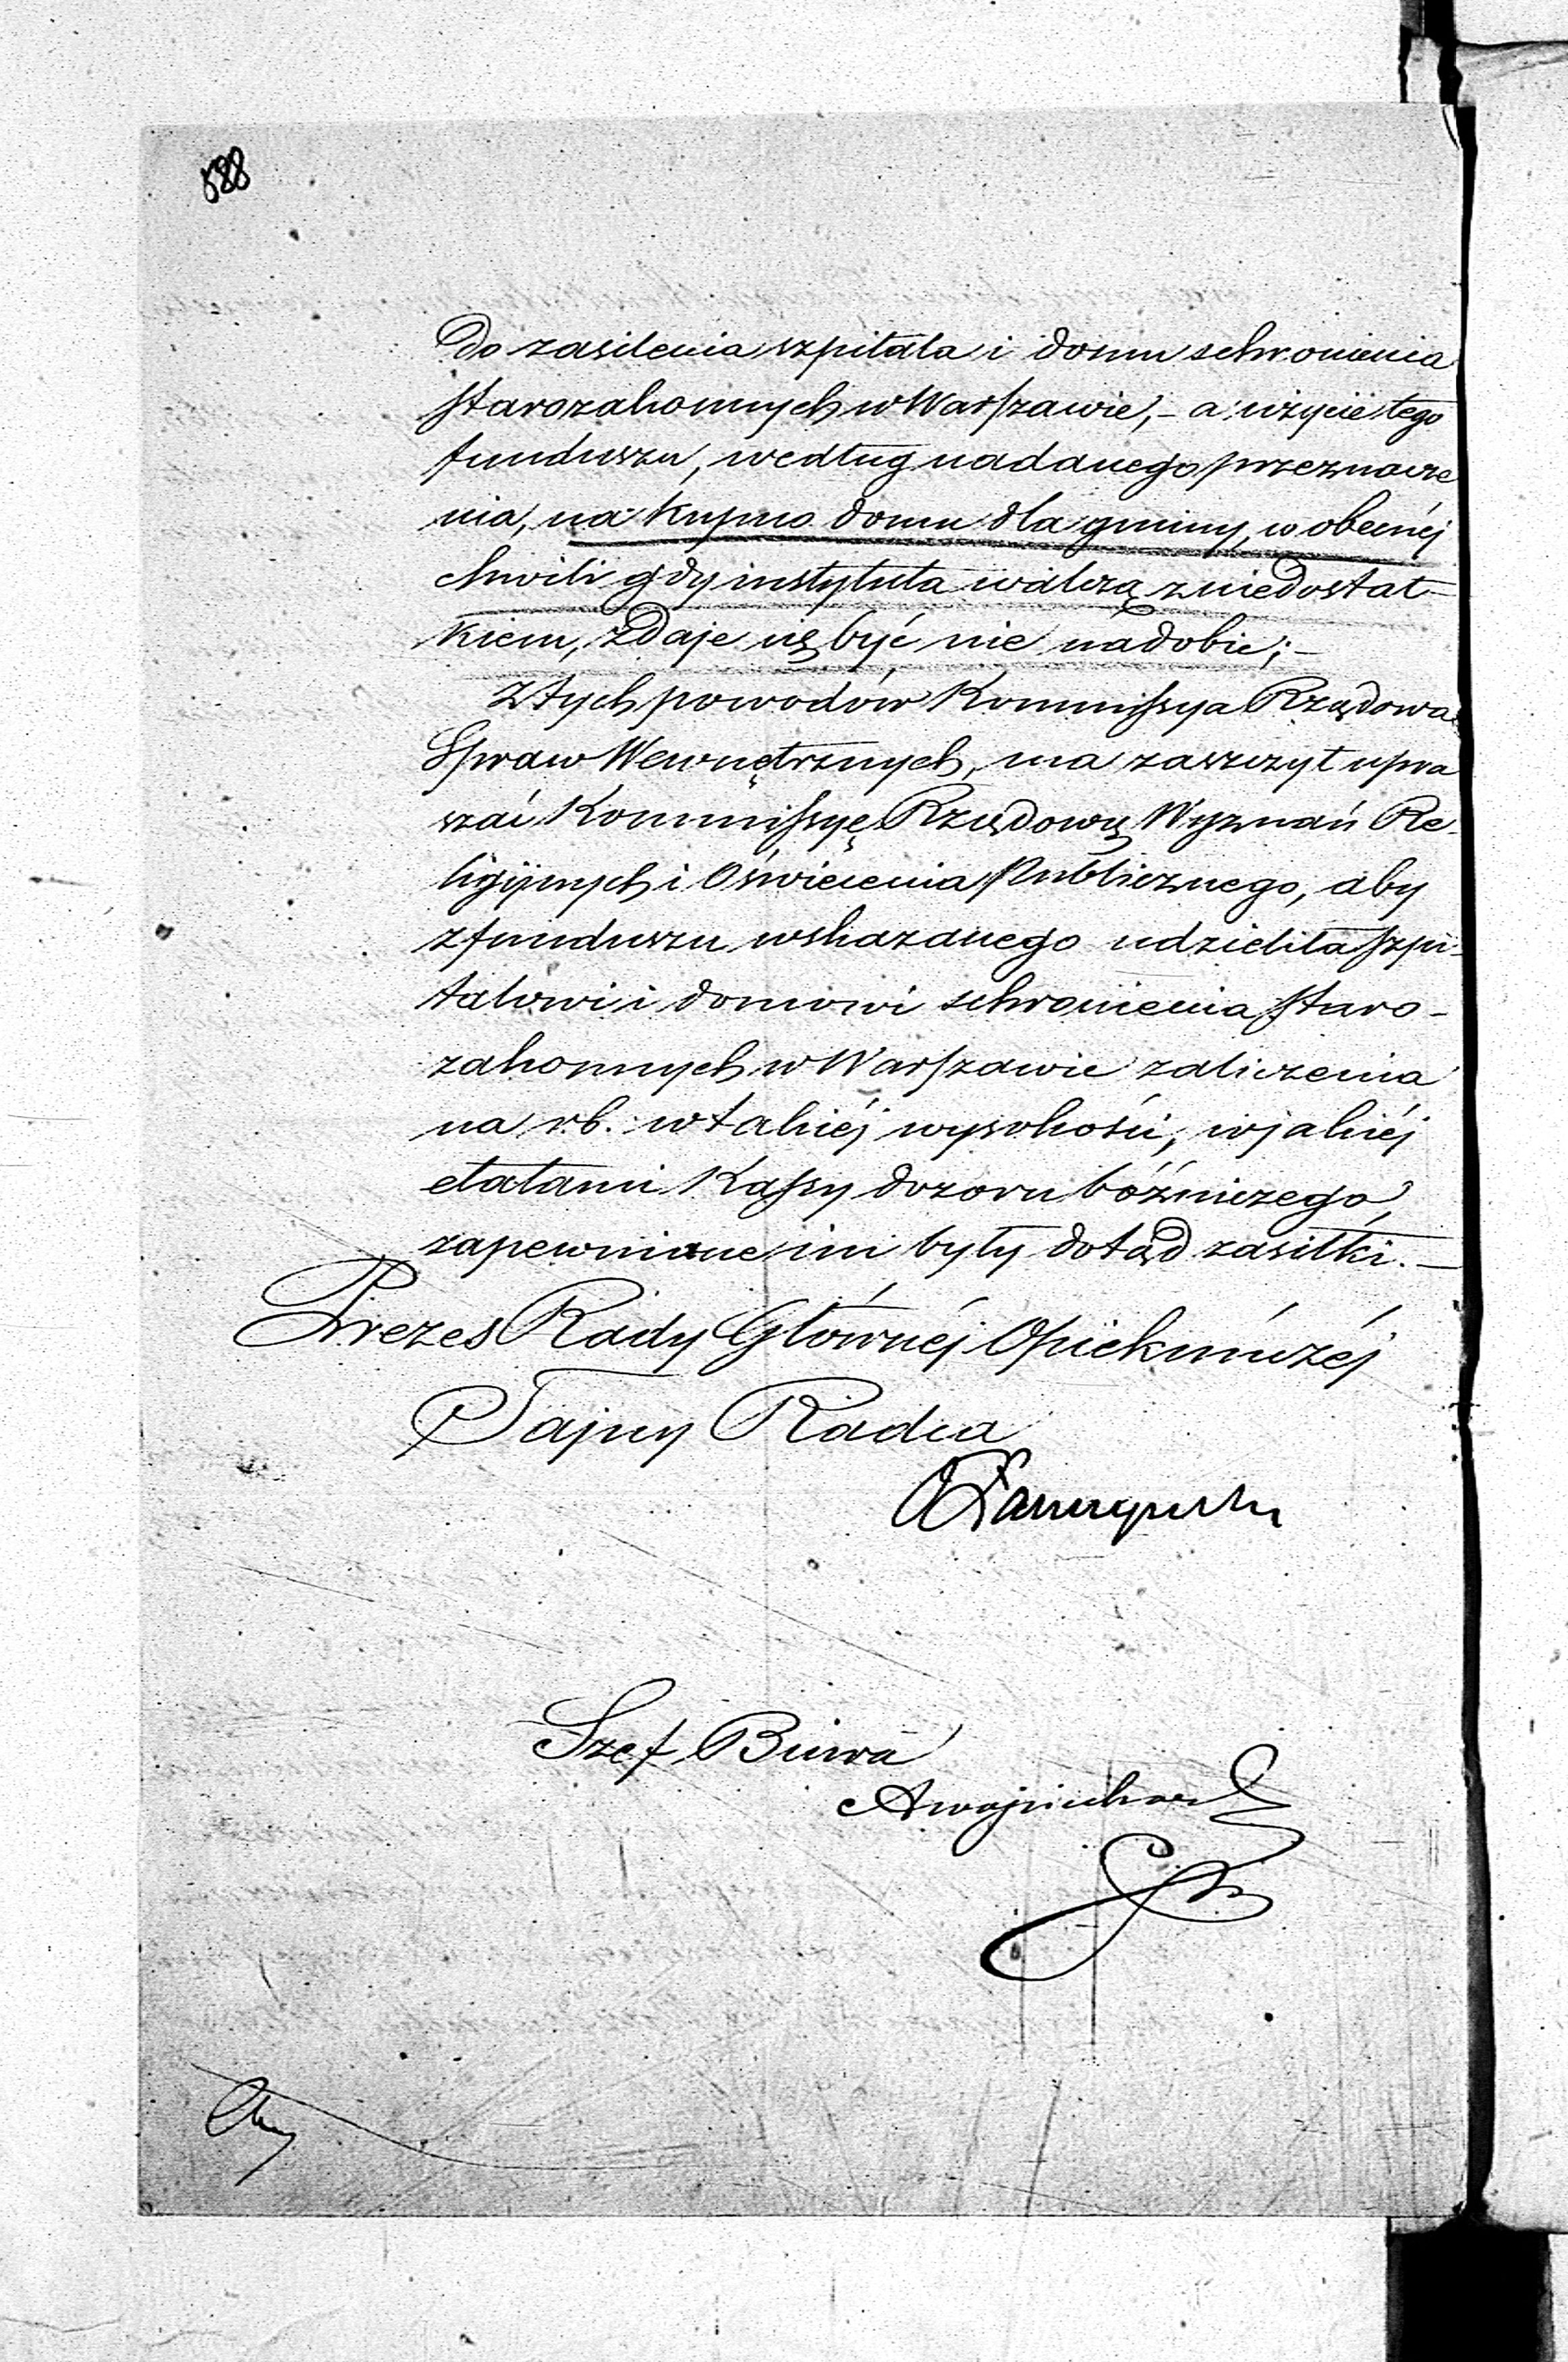 588
do zasilenia szpitala i domu schronienia
starozakonnych w Warszawie, – a użycie tego
funduszu, według nadanego przeznacze
nia, na kupno domu dla gminy, w obecnéj
chwili gdy instytuta walczą z niedostat-
kiem, zdaje się być nie nadobie; –
Z tych powodów Kommissya Rządowa
Spraw Wewnętrznych, ma zaszczyt upra
szać Kommissyę Rządową Wyznań Re-
ligijnych i Oświecenia Publicznego, aby
z funduszu wskazanego udzieliła szpi-
talowi i domowi schronienia staro-
zakonnych w Warszawie zaliczenia
na rb. w takiéj wysokości, w jakiéj
etatami Kassy dozoru bóźniczego,
zapewniane im były dotąd zasiłki. –
Prezes Rady Głównéj Opiekuńczéj
Tajny Radca
Szef Biura